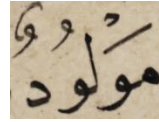 مَوْلُودُ